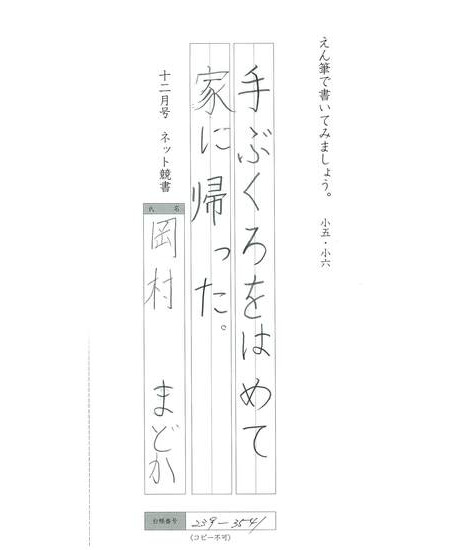 えん筆で書いてみましょう。 小五・小六
手ぶくろをはめて
家に帰った。
十二月号 ネット競書
氏 名
岡村 まどか
台帳番号 239-3541
(コピー不可)